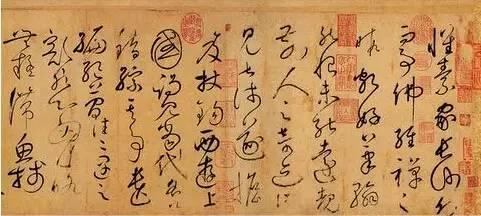 懷素家長沙幼而
事佛經禪之
暇頗好筆翰
然恨未能遠覩
前人之奇迹所
見甚淺遂擔
笈杖錫西遊上
國謁見當代名公
錯綜其事遺
編絶簡往往遇之
豁然心胸略
無疑滯魚牋